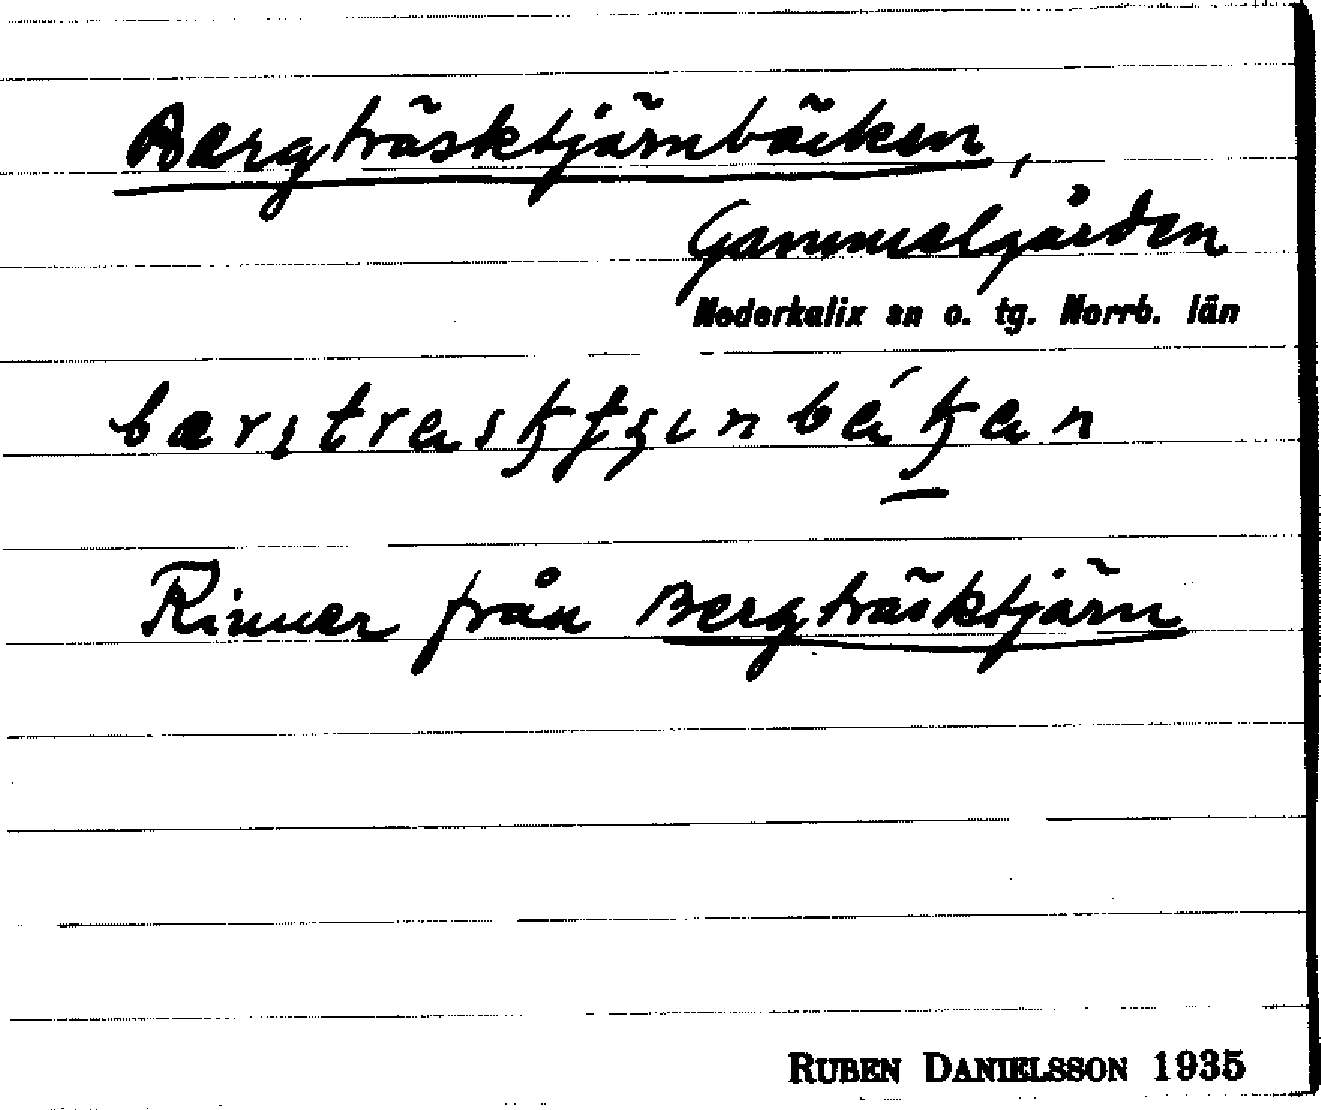 Bergträsktjärnbäcken,
Gammelgården
Nederkalix sn o. tg. Norrb. län
Rinner från Bergträsktjärn
RUBEN DANIELSSON 1935